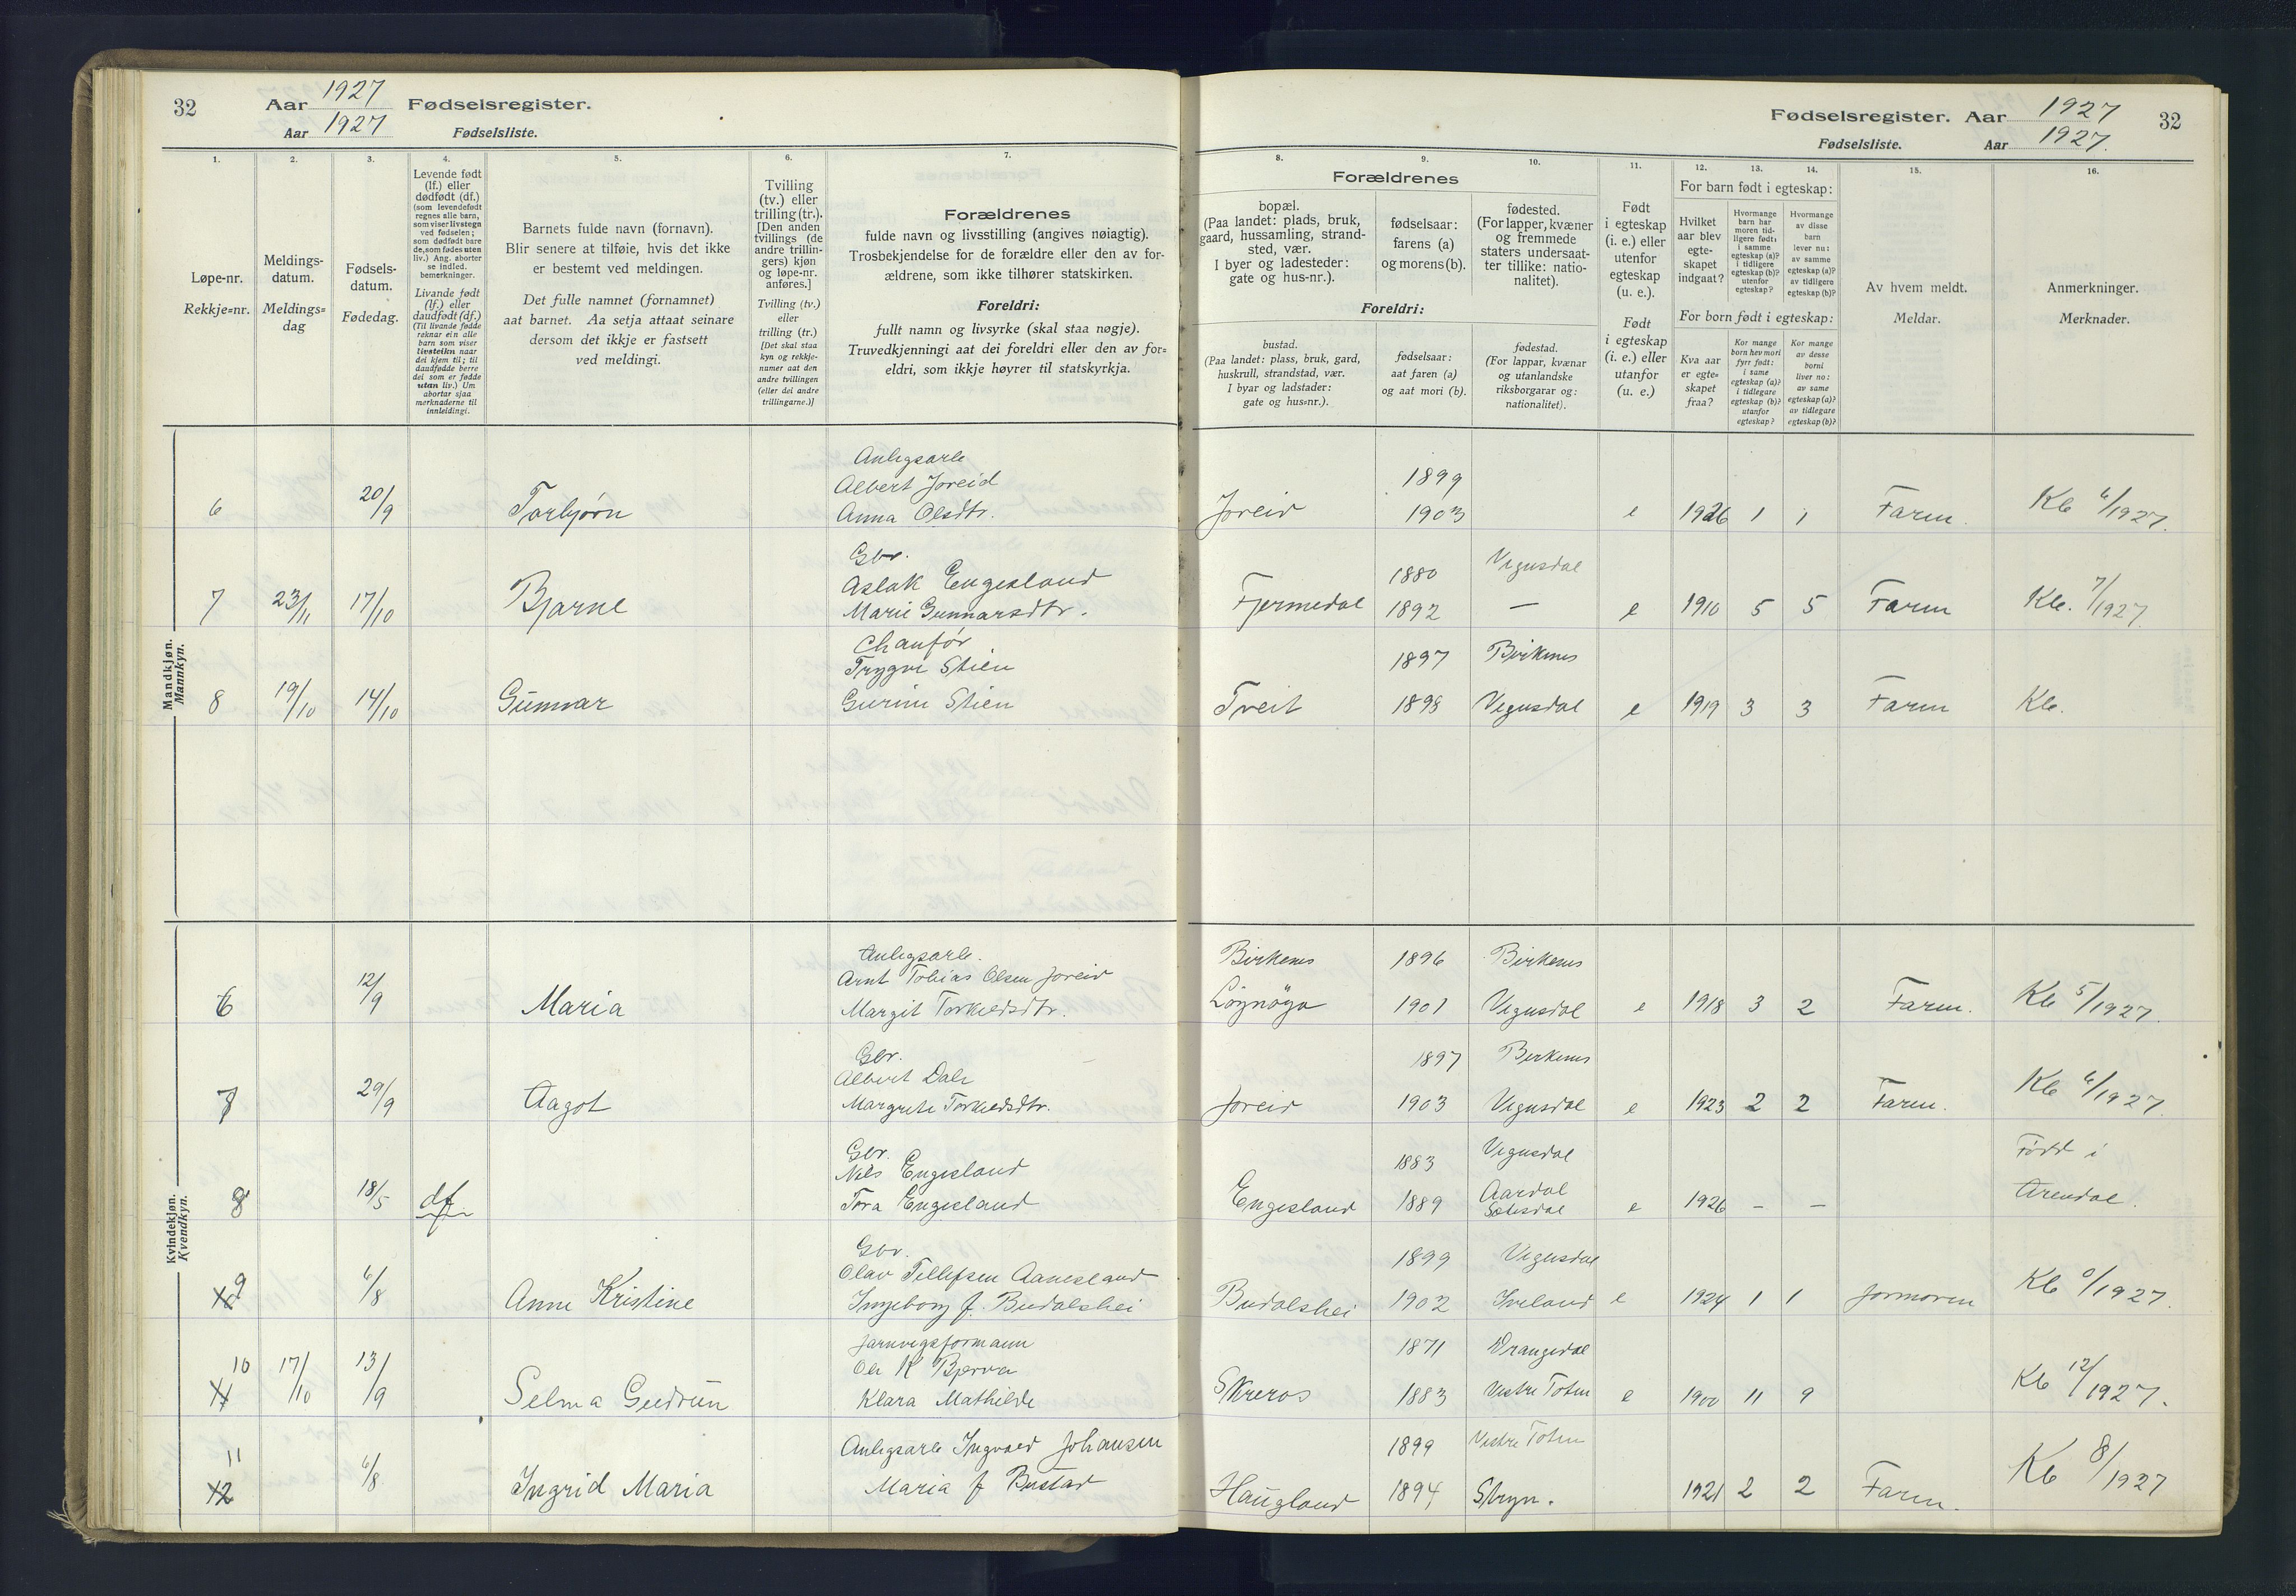 32 Aar 1927 Fødselsregister.
Aar 1927 Fødselsliste.
Fødselsregister. Aar 1927 32
Fødselsliste. Aar 1927.
1. 2. 3. 4. 5. 6. 7.
Løpe-nr.
Rekkje=nr.
Meldings-
datum.
Meldings=
dag
Fødsels-
datum.
Fødedag.
Levende født
(lf.) eller
dødfødt (df.)
(som levendefødt
regnes alle barn,
som viser livstegn
ved fødselen;
som dødfødt bare
de, som fødes uten
liv.) Ang. aborter
se indled.
bemerkninger.
Livande født
(lf.) eller
daudfødt (df.)
(Til livande fødde
reknar ein alle
barn som viser
livsteikn naar
dei kjem til; til
daudfødde berre
dei som er fødde
utan liv.) Um
abortar sjaa
merknaderne til
innleidingi.
Barnets fulde navn (fornavn).
Blir senere at tilføie, hvis det ikke
er bestemt ved meldingen.
Det fulle namnet (fornamnet)
aat barnet. Aa setja attaat seinare
dersom det ikkje er fastsett
ved meldingi.
Tvilling
(tv.) eller
trilling (tr.).
[Den anden
tvillings (de
andre trillin-
gers) kjøn
og løpe-nr.
anføres.]
Tvilling (tv.)
eller
trilling (tr.)
[Det skal staa
kyn og rekkje-
numer aat den
andre tvillingen
(eller dei andre
trillingarne.)]
Forældrenes
fulde navn og livsstilling (angives nøiagtig).
Trosbekjendelse for de forældre eller den av for-
ældrene, som ikke tilhører statskirken.
Foreldri:
fullt namn og livsyrke (skal staa nøgje).
Truvedkjenningi aat dei foreldri eller den av for=
eldri, som ikkje høyrer til statskyrkja.
8. 9. 10. 11. 12. 13. 14. 15. 16.
Forældrenes
bopæl.
(Paa landet: plads, bruk,
gaard, hussamling, strand-
sted, vær.
I byer og ladesteder:
gate og hus-nr.).
fødselsaar:
farens (a)
og morens (b).
fødested.
(For lapper, kvæner
og fremmede
staters undersaat-
ter tillike: natio-
nalitet).
Foreldri:
bustad.
(Paa landet: plass, bruk, gard,
huskrull, strandstad, vær.
I byar og ladstader:
gate og hus=nr.).
fødselsaar:
aat faren (a)
og aat mori (b).
fødestad.
(For lappar, kvænar
og utanlandske
riksborgarar og:
nationalitet).
Født
i egteskap
(i. e.) eller
utenfor
egteskap
(u. e.).
Født
i egteskap
(i. e.) eller
utanfor
(u. e.)
For barn født i egteskap:
Hvilket
aar blev
egte-
skapet
indgaat?
Hvormange
barn har
moren tid-
ligere født:
i samme
egteskap (a)?
i tidligere
egteskap (b)?
utenfor
egteskap?
Hvormange
av disse
barn
lever nu:
av samme
egteskap (a)?
av tidligere
egteskap (b)?
For born født i egteskap:
Kva aar
er egte=
skapet
fraa?
Kor mange
born hev mori
fyrr født:
i same
egteskap (a)?
i tidlegare
egteskap (b)?
utanfor
egteskap?
Kor mange
av desse
borni
liver no:
av same
egteskap (a)?
av tidlegare
egteskap (b)?
Av hvem meldt.
Meldar.
Anmerkninger.
Merknader.
Mandkjøn.
Mannkyn.
Anlegsarb
Albert Joreid 1899
6 20/9 Torbjørn Anna Olsdtr. Joreid 1903 e 1926 1 1 Faren. Kb 6/1927.
Gbr.
Aslak Engesland 1880 Vegusdal
7 23/11 17/10 Bjarne Marie Gunnarsdtr. Fjermedal 1892 — e 1910 5 5 Faren Kb. 7/1927.
Chaufør
Trygve Stien 1897 Birkenes
8 19/10 14/10 Gunnar Gurine Stien Tveit 1898 Vegusdal e 1919 3 3 Faren Kb.
Kvindekjøn.
Kvendkyn.
Anlegsarb. Birkenes 1896 Birkenes
Arnt Tobias Olsen Joreid
6 12/9 Maria Margit Torkildsdtr. Løgnøga 1901 Vegusdal e 1918 3 2 Faren. Kb 5/1927.
Gbr. 1897 Birkenes
Albert Dale
7 29/9 Aagot Margrete Torkildsdtr. Joreid 1903 Vegusdal e 1923 2 2 Faren. Kb 6/1927.
Gbr. 1883 Vegusdal Født i
Nils Engesland
8 18/5 df Tora Engesland Engesland 1889 Aardal Setesdal e 1926 – – Arendal.
Gbr. 1899 Vegusdal
Olav Tellefsen Aanesland
9 6/8 Anne Kristine Ingeborg f. Budalshei Budalshei 1902 Iveland e 1924 1 1 Jormoren Kb 0/1927.
Jarnvegsformann 1871 Drangedal
Ole K Bjerva
10 17/10 13/9 Selma Gudrun Klara Mathilde Skreros 1883 Vestre Toten e 1900 11 9 Kb 12/1927.
11 Anlegsarb Ingvald Johansen 1899 Vestre Toten
12 6/8 Ingrid Maria Maria f Bustad Haugland 1894 Stryn. 1921 2 2 Faren. Kb 8/1927